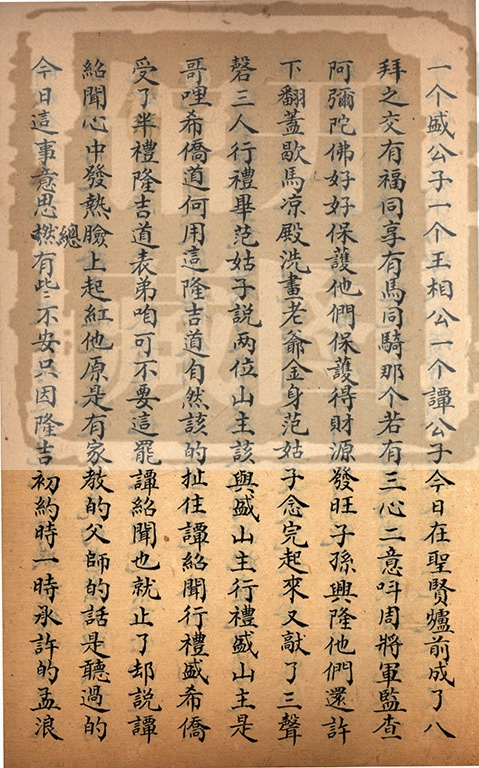 一个盛公子一个王相公一个譚公子今日在聖賢爐前成了八
拜之交有福同享有馬同騎那个若有三心二意呌周將軍監查
阿彌陀佛好好保護他們保護得財源發旺子孫興隆他們還許
下翻蓋歇馬凉殿洗畫老爺金身范姑子念完起來又敲了三聲
磬三人行禮畢范姑子説两位山主該與盛山主行禮盛山主是
哥哩希僑道何用這隆吉道自然該的扯住譚紹聞行禮盛希僑
受了半禮隆吉道表弟咱可不要這罷譚紹聞也就止了却説譚
紹聞心中發熱臉上起紅他原是有家教的父師的話是聽過的
今日這事意思總有些不安只因隆吉初約時一時承許的孟浪